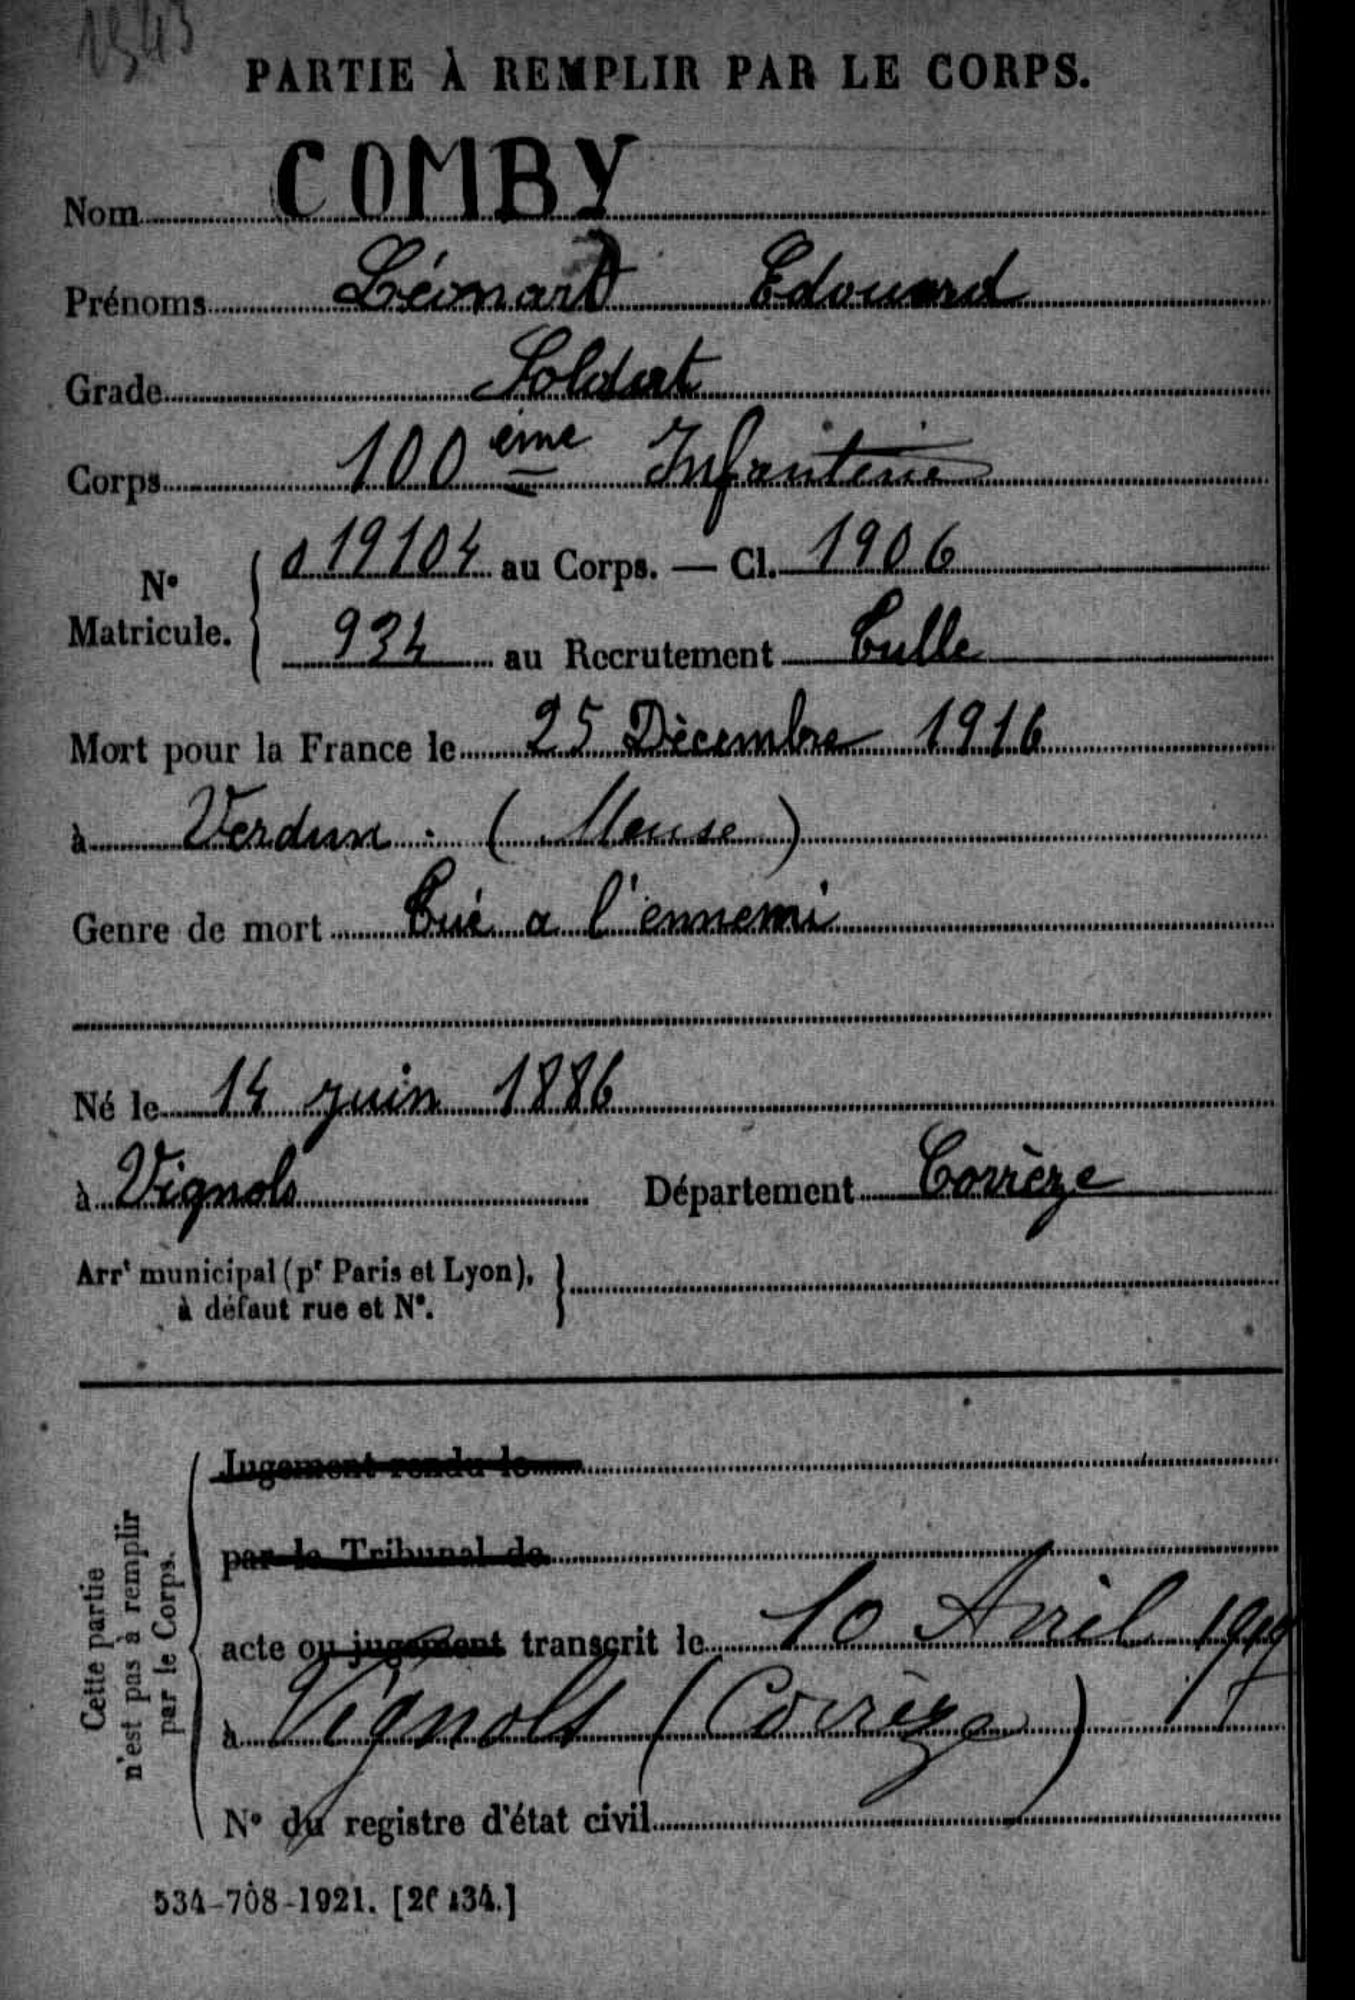 1543
PARTIE À REMPLIR PAR LE CORPS.
Nom COMBY
Prénoms Léonard Edouard
Grade Soldat
Corps 100 ème Infanterie
N° Matricule. { 019104 au Corps. — Cl. 1906
934 au Recrutement Tulle
Mort pour la France le 25 Décembre 1916
à Verdun. (Meuse)
Genre de mort Tué a l'ennemi
Né le 14 juin 1886
à Vignols Département Corrèze
Arrt municipal (pr Paris et Lyon), }
à défaut rue et N°.
Cette partie
n'est pas à remplir
par le Corps.
Jugement rendu le
par le Tribunal de
acte ou jugement transcrit le 10 Avril 1917
à Vignols (Corrèze)
N° du registre d'état civil
534-708-1921. [26434.]